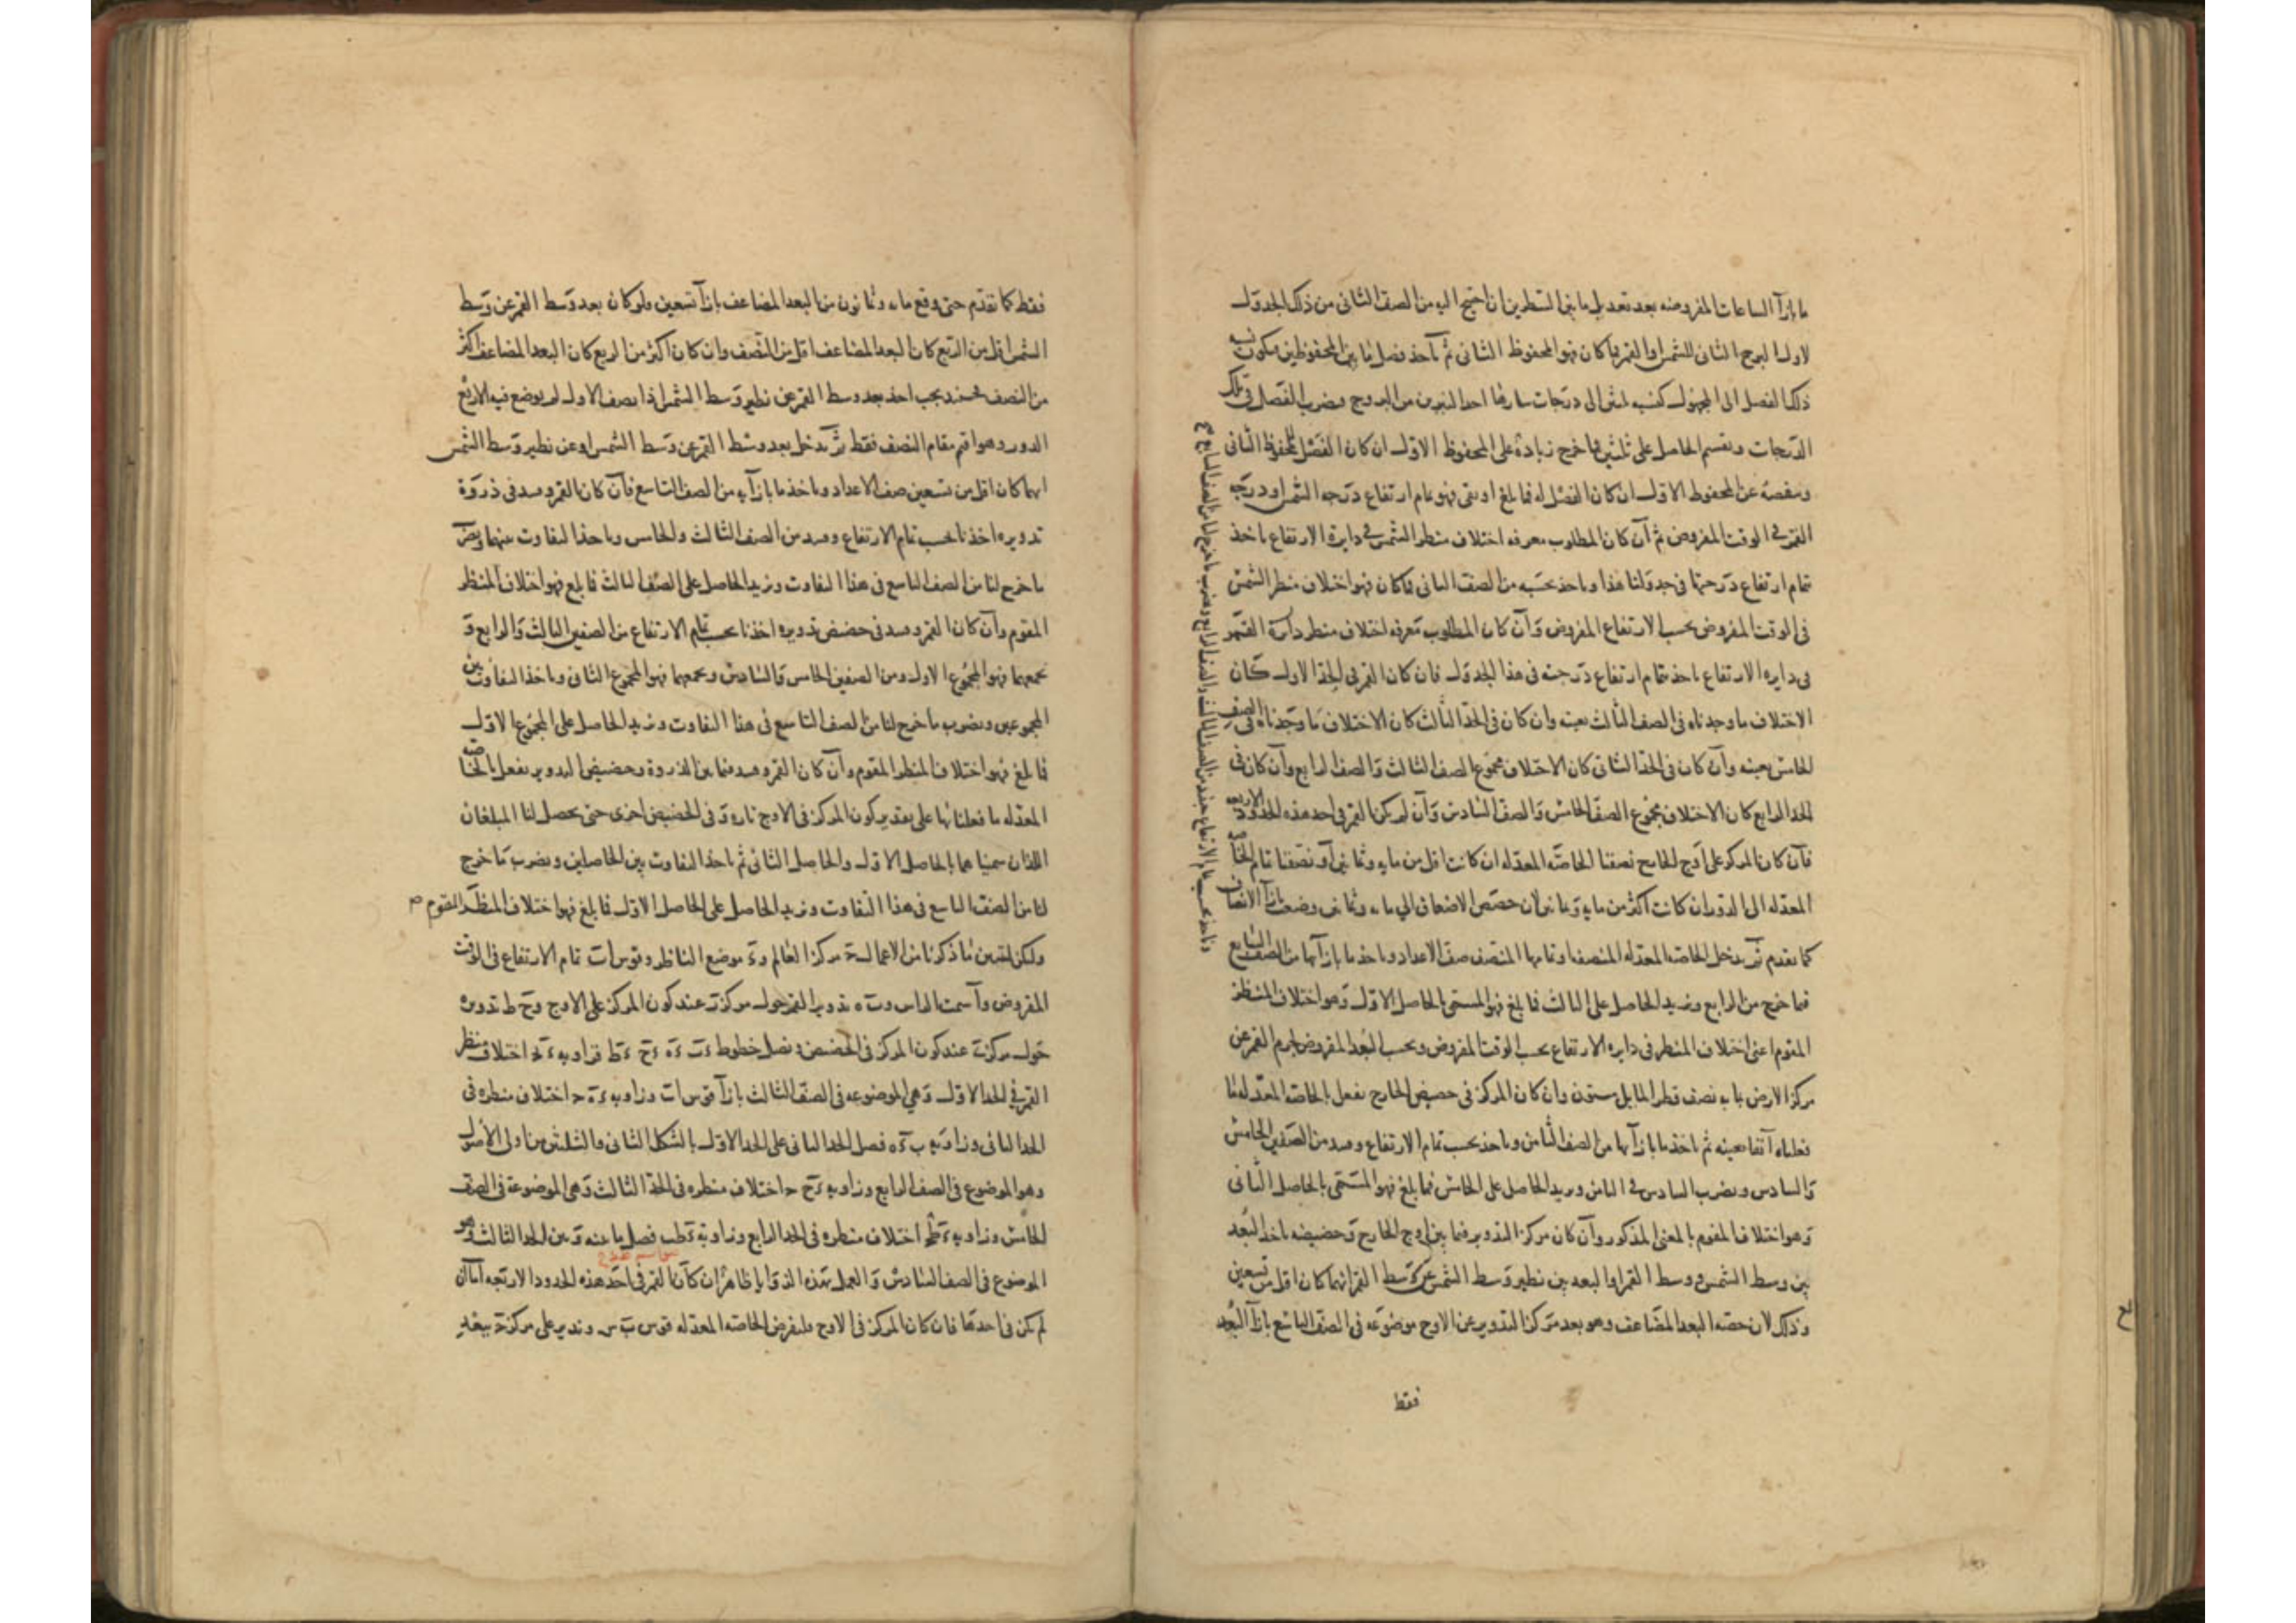 ما بازآ الساعات المفروضه بعد تعديل ما بين السطرين ان احتيج اليه من الصف الثانى من ذلك الجدول
لاول البرج الثانى للشمس او القمر فما كان فهو المحفوظ الثانى ثم نأخذ فضل ما بين المحفوظين فيكون نسبة
ذلك الفصل الى المجهول كنسبه ثلثين الى درجات سارها احد النيرين من البروج فيضرب الفصل فى تلك
الدرجات ويقسم الحاصل على ثلثين فما خرج زيادة على المحفوظ الاول ان كان الفضل للمحفوظ الثانى
وننقصه عن المحفوظ الاول ان كان الفضل له فما بلغ او بقى فهو تمام ارتفاع درجه الشمس او درجه
القمر فى الوقت المفروض ثم آن كان المطلوب معرفه اختلاف منظر الشمس فى دايرة الارتفاع ناخذ
تمام ارتفاع درجتها فى جدولنا هذا وناخذ بحسبه من الصف الثانى فما كان فهو اختلاف منظر الشمس
فى الوقت المفروض بحسب الارتفاع المفروض وآن كان المطلوب معرفه اختلاف منظر دايرة القمر
فى دايره الارتفاع ناخذ تمام ارتفاع درجته فى هذا الجدول فان كان القمر فى الحد الاول كان
الاختلاف ما وجدناه فى الصف الثالث بعينه وان كان فى الحد الثالث كان الاختلاف ما وجدناه فى الصف
الخامس بعينه وآن كان فى الحد الثانى كان الاختلاف مجموع الصف الثالث والصف الرابع وآن كان فى
الحد الرابع كان الاختلاف مجموع الصف الخامس والصف السادس وآن لم يكن القمر فى احد هذه الحدود الاربعه
فآن كان المركز على اوج الخارج نصفنا الخاصه المعدله ان كانت اقل من مايه وثمانين او نصفنا تمام الخاصه
المعدله الى الدور ان كانت اكثر من مايه وثمانين لان حصص الاضعاف الى مايه وثمانين وضعت بازآ الانصاف
كما تقدم ثم ندخل الخاصه المعدله المنصفه او تمامها المنصف صف الاعداد وناخذ ما بازآيها من الصف السابع
فما خرج من الرابع ونزيد الحاصل على الثالث فما بلغ فهو المسمى بالحاصل الاول وهو اختلاف المنظر
المقوم اعنى اختلاف المنظر فى دايره الارتفاع بحسب الوقت المفروض وبحسب البعد المفروض لجرم القمر عن
مركز الارض بما به نصف قطر المايل ستون وان كان المركز فى حضيض الخارج نفعل بالخاصه المعدله ما
فعلناه آنفا بعينه ثم ناخذ ما بازآيها من الصف الثامن وناخذ بحسب تمام الارتفاع وحده من الصفين الخامس
والسادس ونضرب السادس فى الثامن ونزيد الحاصل على الخامس فما بلغ فهو المسمى بالحاصل الثانى
وهو اختلاف المقوم بالمعنى المذكور وآن كان مركز التدوير فيما بين اوج الخارج وحضيضه ناخذ البعد
بين وسط الشمس ووسط القمر او البعد بين نظير وسط الشمس عن وسط القمر ايهما كان اقل من تسعين
وذلك لان حصه البعد المضاعف وهو بعد مركز التدوير عن الاوج موضوعه فى الصف التاسع بازآ البعد
فقط
وناخذ بحسب تمام الارتفاع وحده من الصف الثالث والصف الرابع ونضرب ما خرج لنا من الصف السابع
فقط كما تقدم حتى وقع مايه وثمانون من البعد المضاعف بازآ تسعين ولو كان بعد وسط القمر عن وسط
الشمس اقل من الربع كان البعد المضاعف اقل من النصف وان كان اكثر من الربع كان البعد المضاعف اكثر
من النصف فحينئذ يجب اخذ بعد وسط القمر عن نظير وسط الشمس اذا نصف الاول لم يوضع فيه الاربع
الدور وهو اقيم مقام النصف فقط ثم ندخل بعد وسط القمر عن وسط الشمس او عن نظير وسط الشمس
ايهما كان اقل من تسعين صف الاعداد وناخذ ما بازآيه من الصف التاسع فآن كان القمر وحده فى ذروة
تدويره اخذنا بحسب تمام الارتفاع وحده من الصف الثالث والخامس وناخذ التفاوت بينهما ونضرب
ما خرج لنا من الصف التاسع فى هذا التفاوت ونزيد الحاصل على الصف الثالث فما بلغ فهو اختلاف المنظر
المقوم وآن كان القمر وحده فى حضيض تدويره اخذنا بحسب تمام الارتفاع من الصفين الثالث والرابع و
نجمعهما فهو المجموع الاول ومن الصفين الخامس والسادس ونجمعهما فهو المجموع الثانى وناخذ التفاوت بين
المجموعين ونضرب ما خرج لنا من الصف التاسع فى هذا التفاوت ونزيد الحاصل على المجموع الاول
فما بلغ فهو اختلاف المنظر المقوم وآن كان القمر وحده فيما بين الذروة وحضيض التدوير نفعل بالخاصه
المعدله ما فعلنا بها على تقدير كون المركز فى الاوج تاره وفى الحضيض اخرى حتى يحصل لنا المبلغان
اللذان سميناهما بالحاصل الاول والحاصل الثانى ثم ناخذ التفاوت بين الحاصلين ونضرب ما خرج
لنا من الصف التاسع فى هذا التفاوت ونزيد الحاصل على الحاصل الاول فما بلغ فهو اختلاف المنظر المقوم
وليكن لتبين ما ذكرنا من الاعمال ح مركز العالم وء موضع الناظر وقوس اب تمام الارتفاع فى الوقت
المفروض وآ سمت الراس وب ه تدوير القمر حول مركز عند كون المركز على الاوج وح ط تدويره
حول مركز عند كون المركز فى الحضيض ونصل خطوط فزاويه اختلاف منظر
القمر فى الحد الاول وهى الموضوعه فى الصف الثالث بازآ قوس اب وزاويه اختلاف منظره فى
الحد الثانى وزاويه فضل الحد الثانى على الحد الاول بالشكل الثانى والثلثين من اولى الاصول
وهو الموضوع فى الصف الرابع وزاويه اختلاف منظره فى الحد الثالث وهى الموضوعة فى الصف
الخامس وزاويه اختلاف منظره فى الحد الرابع وزاوية فصل ما بينه وبين الحد الثالث وهو
الموضوع فى الصف السادس والعمل بهذه الزوايا ظاهر ان كان القمر فى احد هذه الحدود الاربعه اما ان
لم يكن فى احدها فان كان المركز فى الاوج فليفرض الخاصه المعدله قوس وندير على مركز ح ببعد